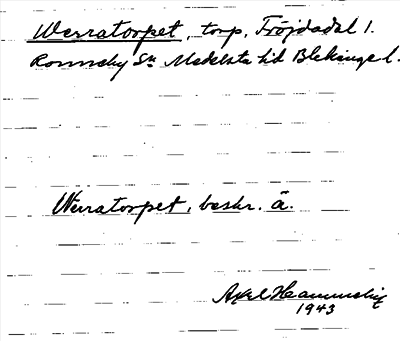 Werratorpet, torp, Fröjdadal 1.
Ronneby Sn Medelsta hd Blekinge l.
Werratorpet, beskr. ä.
Axel
1943